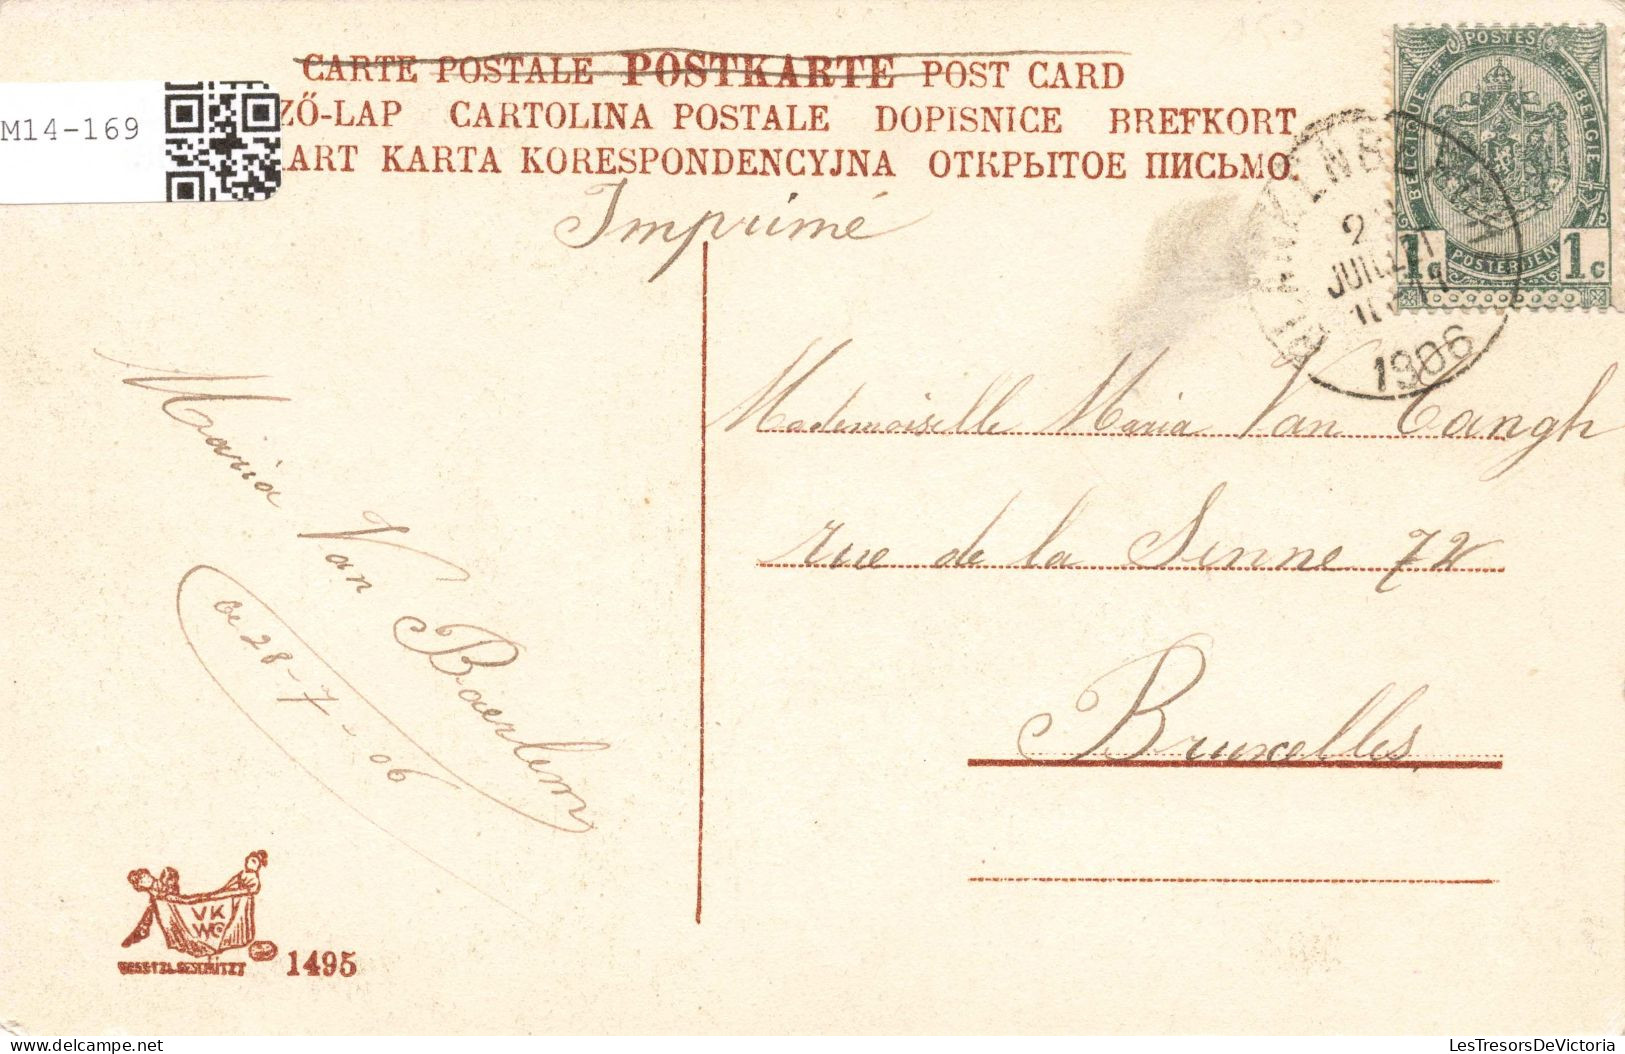 CARTE POSTALE POSTKARTE POST CARD
ZŐ-LAP CARTOLINA POSTALE DOPISNICE BREFKORT
ART KARTA KORESPONDENCYJNA ОТКРЫТОЕ ПИСЬМО.
M14-169
Imprimé
POSTES
BELGIQUE BELGIË
POSTERIJEN
1c 1c
JUILLET
1906
Mademoiselle Maria Van Cangh
rue de la Senne 72
Bruxelles
Maria Van Baerlem
28-7-06
VK
WC
GESETZL. GESCHÜTZT
1495
LesTresorsDeVictoria
delcampe.net